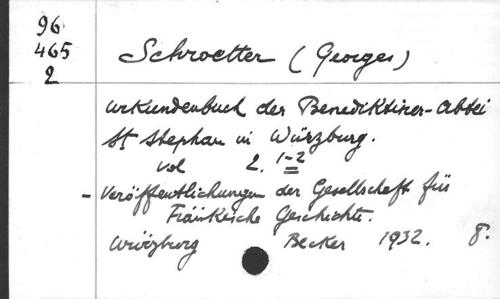 96
465
2
Schroetter (Georges)
Urkundenbuch der Benediktiner-Abtei
St Stephan in Würzburg.
vol 2. 1-2
- Veröffentlichungen der Gesellschaft für
Fränkische Geschichte.
Würzburg Becker 1932. 8.